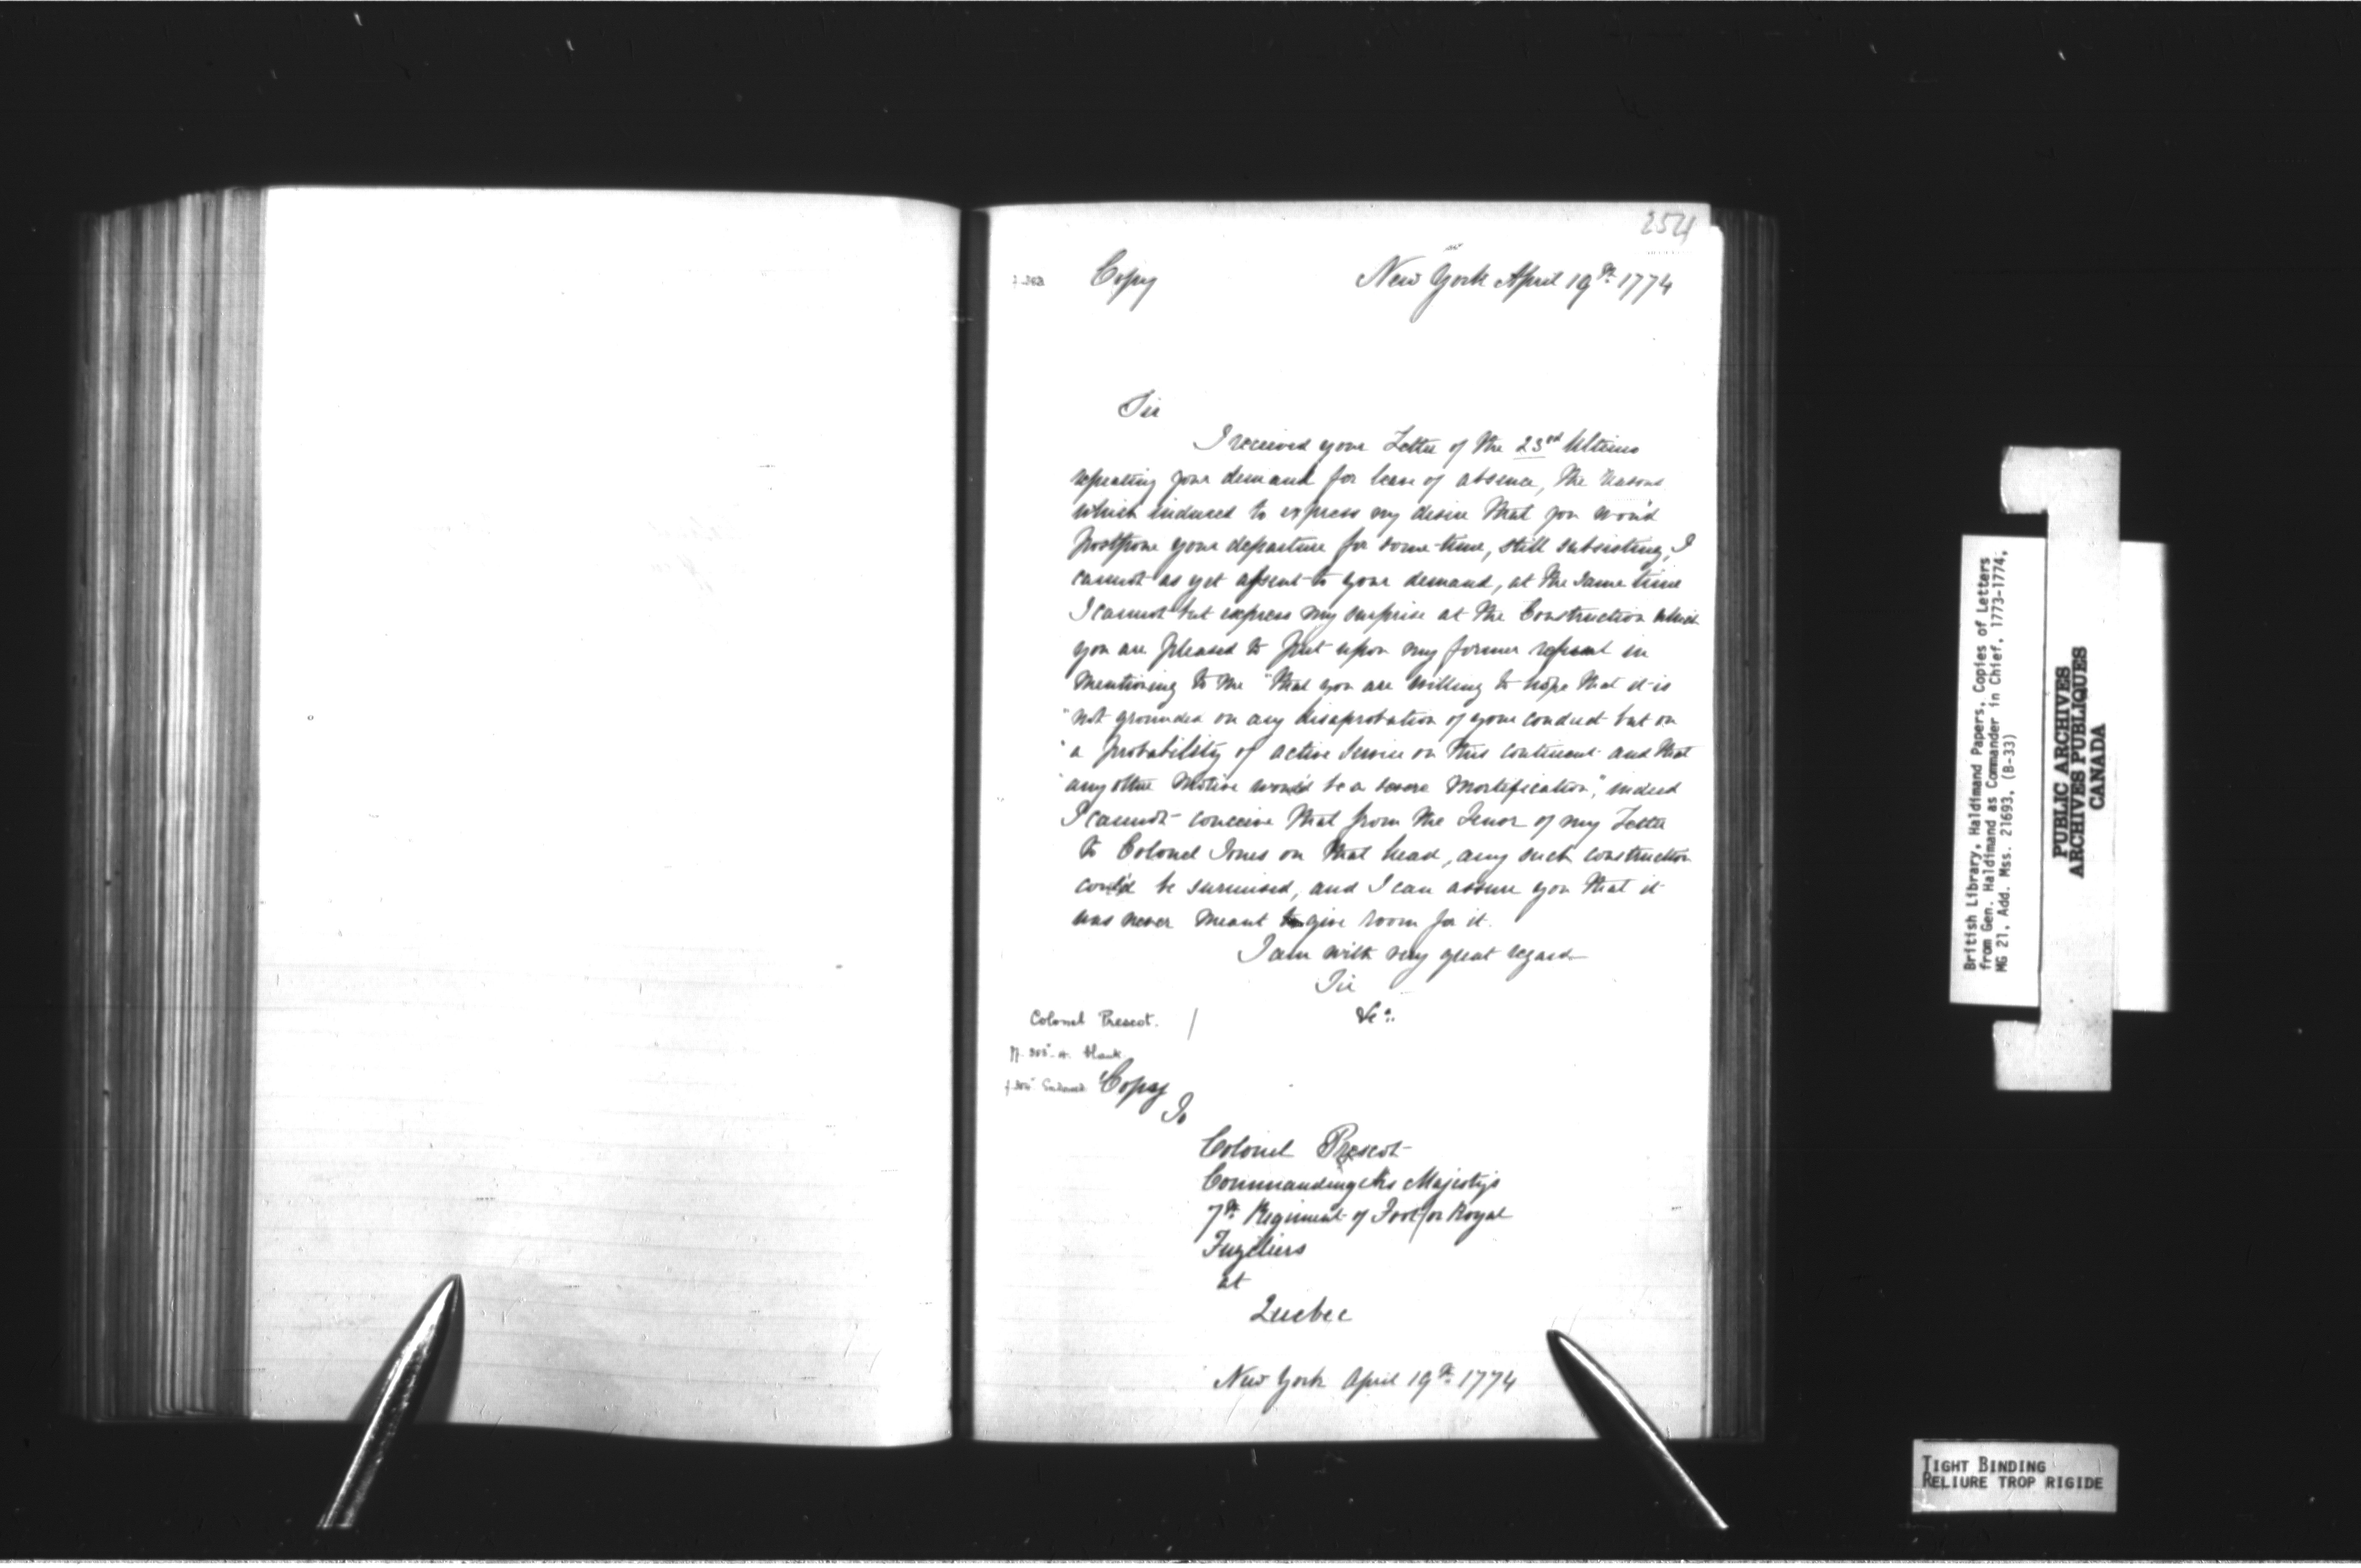 254
Copy New York April 19th 1774
Sir
I received your Letter of the 23rd Ultimo
repeating your demand for leave of absence, the reasons
which induced to express my desire that you wou'd
postpone your departure for some time, still subsisting, I
cannot as yet assent to your demand, at the same time
I cannot but express my surprise at the Construction which
you are pleased to put upon my former refusal in
mentioning to me "that you are willing to hope that it is
"not grounded on any disaprobation of your conduct but on
"a probability of active Service on this continent and that
"any other motive would be a severe mortification," indeed
I cannot conceive that from the Tenor of my Letter
to Colonel Jones on that head, any such construction
could be surmised, and I can assure you that it
was never meant to give room for it.
I am with very great regard
Sir
&ca.
Colonel Prescot.
blank
Copy
To
Colonel Prescot
Commanding His Majestys
7th Regiment of Foot or Royal
Fuziliers
at
Quebec
New York April 19th 1774
British Library, Haldimand Papers, Copies of Letters
from Gen. Haldimand as Commander in Chief, 1773-1774,
MG 21, Add. Mss. 21693, (B-33)
PUBLIC ARCHIVES
ARCHIVES PUBLIQUES
CANADA
TIGHT BINDING
RELIURE TROP RIGIDE